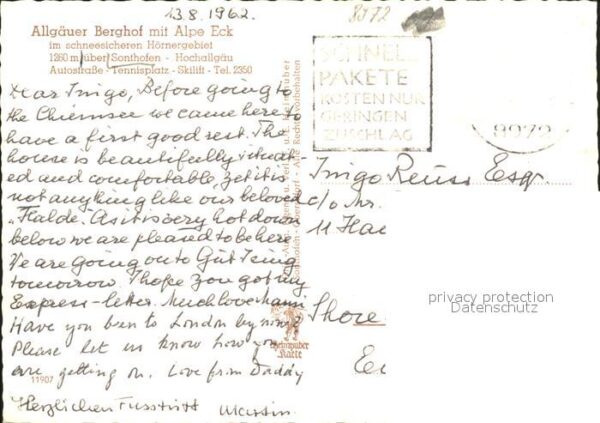 13.8.1962.
8972
Allgäuer Berghof mit Alpe Eck
im schneesicheren Hörnergebiet
1260 m über Sonthofen - Hochallgäu
Autostraße - Tennisplatz - Skilift - Tel. 2350
Dear Ingo, Before going to
the Chiemsee we came here to
have a first good rest. The
house is beautifully situat-
ed and comfortable, yet it is
not anything like our beloved
"Halde". As it is very hot down
below we are pleased to be here
We are going on to Gut Ising
tomorrow. I hope you got my
Express-letter. Much love
Have you been to London by now?
Please let us know how you
are getting on. Love from Daddy
11907
Herzlichen Fusstritt Martin
SCHNELL-
PAKETE
KOSTEN NUR
GERINGEN
ZUSCHLAG
8972
Ingo Reuss Esq.
c/o Mr.
11 Ha
Shore
privacy protection
Datenschutz
Alle Rechte vorbehalten
Karte